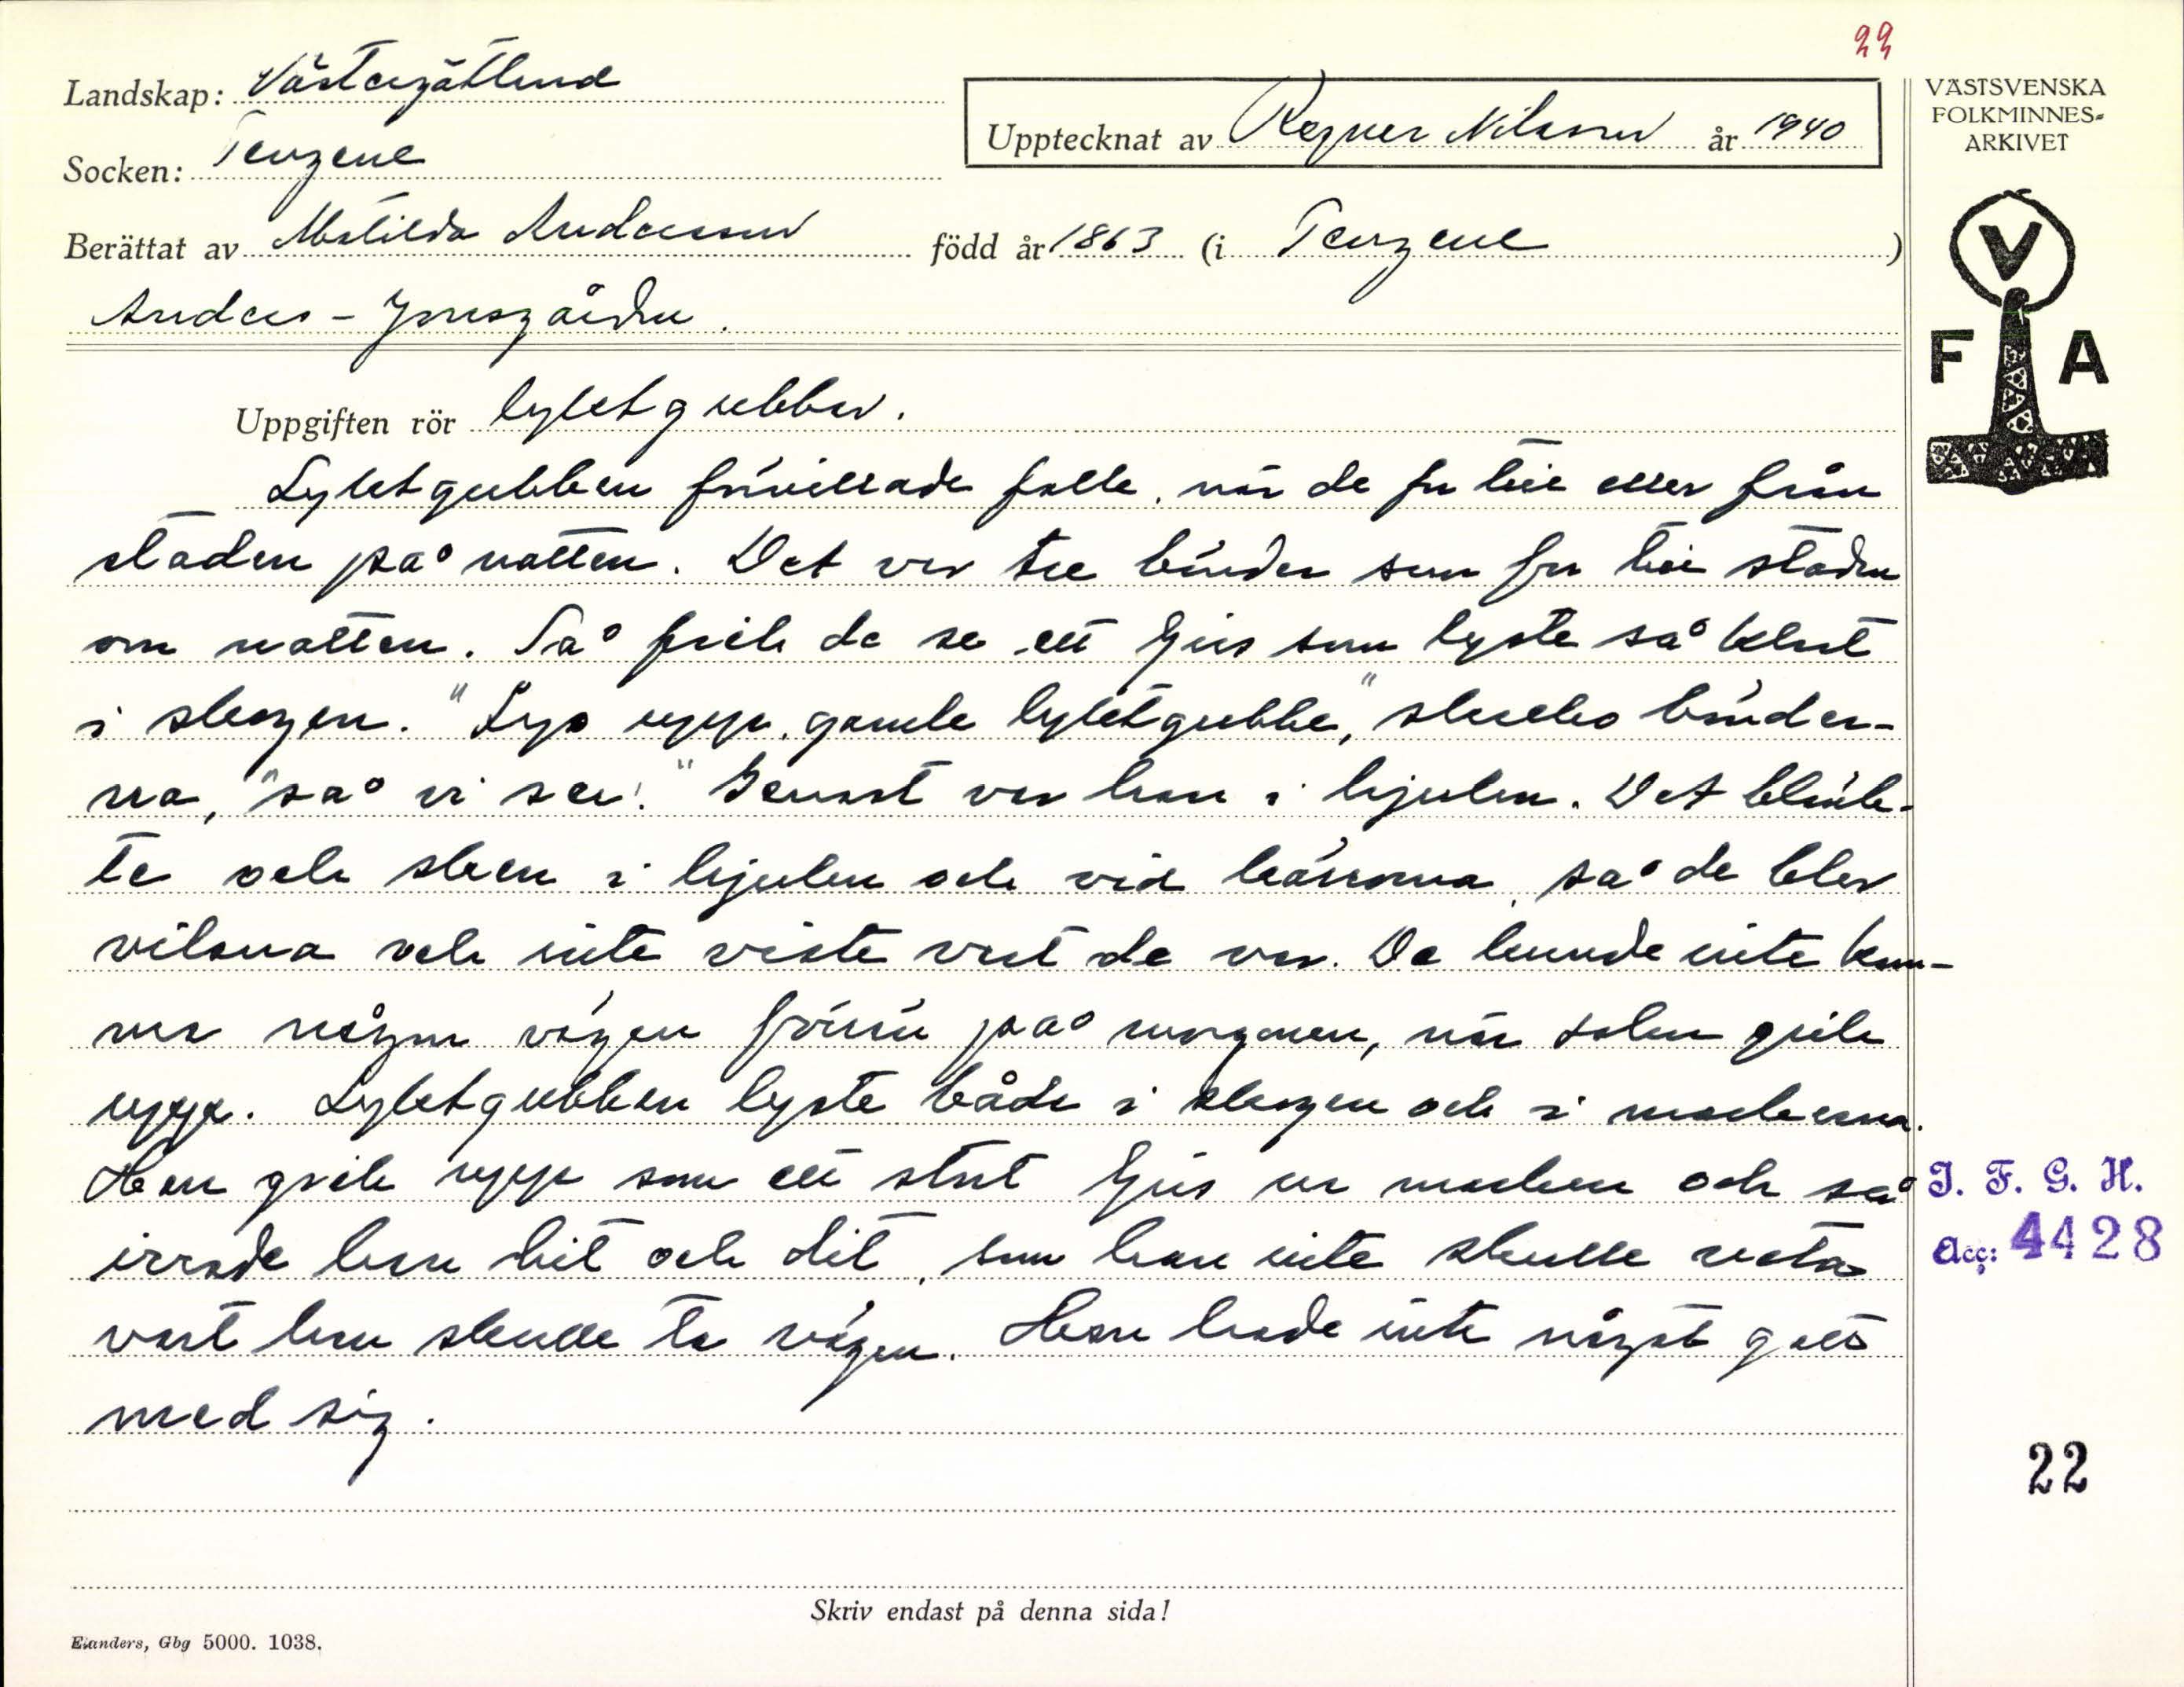 22
Landskap: Västergötland
Upptecknat av Ragnar Nilsson år 1940
VÄSTSVENSKA
FOLKMINNES-
ARKIVET
Socken: Tengene
Berättat av Matilda Andersson född år 1863 (i Tengene)
Anders-Jonsgården.
V
F A
Uppgiften rör lyktgubbar.
Lyktgubben förvillade folk, när de for till eller från
staden på natten. Det var tre bönder som for till staden
om natten. Så fick de se ett ljus som lyste så klart
i skogen. "Lys upp, gamle lyktgubbe," skreko bönder-
na, "så vi ser!" Genast var han i hjulen. Det blänk-
te och sken i hjulen och vid kärrorna, så de blev
vilsna och inte visste vart de var. De kunde inte kom-
ma någon vägen förrän på morgonen, när solen gick
upp. Lyktgubben lyste både i skogen och i mossarna.
Han gick upp som ett stort ljus ur mossen och så
irrade han hit och dit, som han inte skulle veta
vart han skulle ta vägen. Han hade inte något gott
med sig.
I. F. G. H.
Acc: 4428
22
Skriv endast på denna sida!
Elanders, Gbg 5000. 1038.